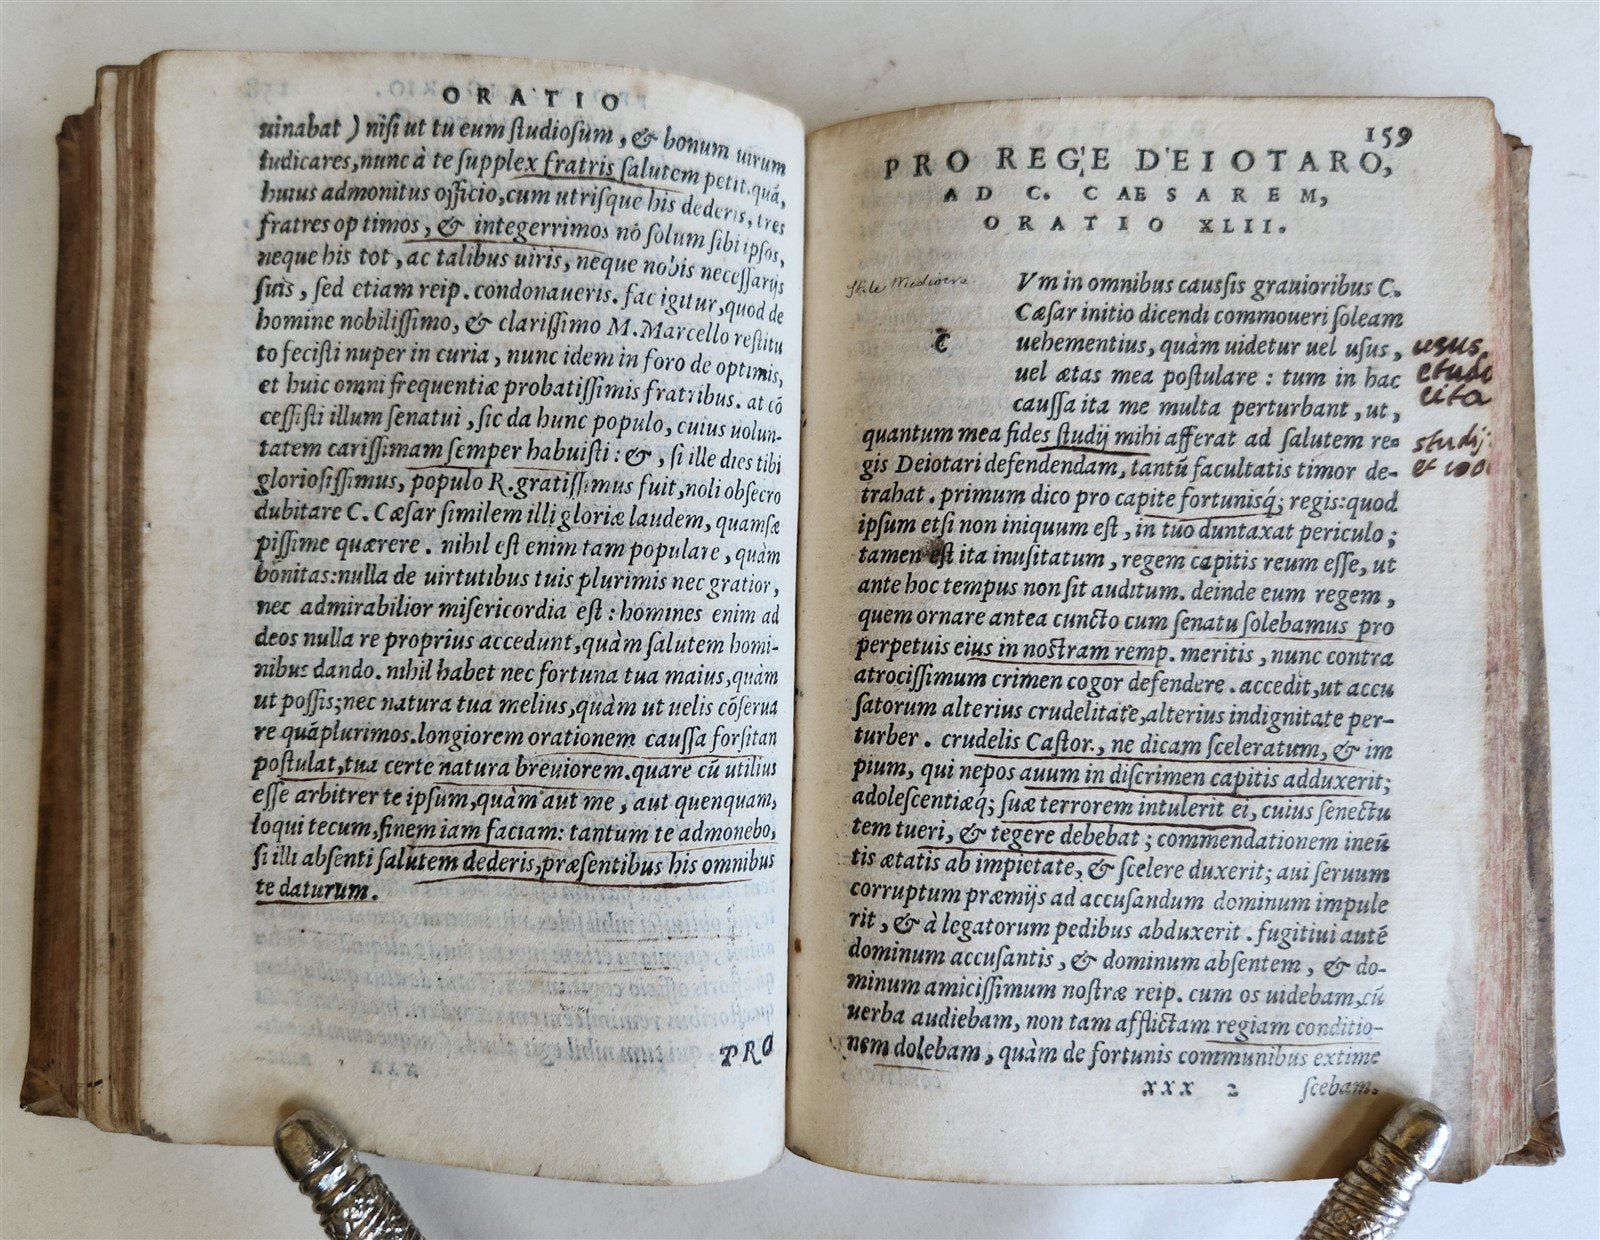 ORATIO
uinabat) nisi ut tu eum studiosum, & bonum uirum
iudicares, nunc à te supplex fratris salutem petit. quã,
huius admonitus officio, cum utrisque his dederis, tres
fratres optimos, & integerrimos nõ solum sibi ipsos,
neque his tot, ac talibus uiris, neque nobis necessarijs
suis, sed etiam reip. condonaueris. fac igitur, quod de
homine nobilissimo, & clarissimo M. Marcello restitu
to fecisti nuper in curia, nunc idem in foro de optimis,
et huic omni frequentiæ probatissimis fratribus. at cõ
cessisti illum senatui, sic da hunc populo, cuius uolun-
tatem carissimam semper habuisti: &, si ille dies tibi
gloriosissimus, populo R. gratissimus fuit, noli obsecro
dubitare C. Cæsar similem illi gloriæ laudem, quamsæ
pissime quærere. nihil est enim tam populare, quàm
bonitas: nulla de uirtutibus tuis plurimis nec gratior,
nec admirabilior misericordia est: homines enim ad
deos nulla re proprius accedunt, quàm salutem homi-
nibus dando. nihil habet nec fortuna tua maius, quàm
ut possis; nec natura tua melius, quàm ut uelis cõserua
re quãplurimos. longiorem orationem caussa forsitan
postulat, tua certe natura breuiorem. quare cũ utilius
esse arbitrer te ipsum, quàm aut me, aut quenquam,
loqui tecum, finem iam faciam: tantum te admonebo,
si illi absenti salutem dederis, præsentibus his omnibus
te daturum.
PRO
159
PRO REGE DEIOTARO,
AD C. CAESAREM,
ORATIO XLII.
Stile Mediocre
C
Vm in omnibus caussis grauioribus C.
Cæsar initio dicendi commoueri soleam
uehementius, quàm uidetur uel usus,
usus
uel ætas mea postulare: tum in hac
caussa ita me multa perturbant, ut,
quantum mea fides studij mihi afferat ad salutem re-
studij
gis Deiotari defendendam, tantũ facultatis timor de-
et
trahat. primum dico pro capite fortunisq́; regis: quod
ipsum etsi non iniquum est, in tuo duntaxat periculo;
tamen est ita inusitatum, regem capitis reum esse, ut
ante hoc tempus non sit auditum. deinde eum regem,
quem ornare antea cuncto cum senatu solebamus pro
perpetuis eius in nostram remp. meritis, nunc contra
atrocissimum crimen cogor defendere. accedit, ut accu
satorum alterius crudelitate, alterius indignitate per-
turber. crudelis Castor, ne dicam sceleratum, & im
pium, qui nepos auum in discrimen capitis adduxerit;
adolescentiæq́; suæ terrorem intulerit ei, cuius senectu
tem tueri, & tegere debebat; commendationem ineũ
tis ætatis ab impietate, & scelere duxerit; aui seruum
corruptum præmijs ad accusandum dominum impule
rit, & à legatorum pedibus abduxerit. fugitiui autẽ
dominum accusantis, & dominum absentem, & do-
minum amicissimum nostræ reip. cum os uidebam, cũ
uerba audiebam, non tam afflictam regiam conditio-
nem dolebam, quàm de fortunis communibus extime
XXX 2 scebam.